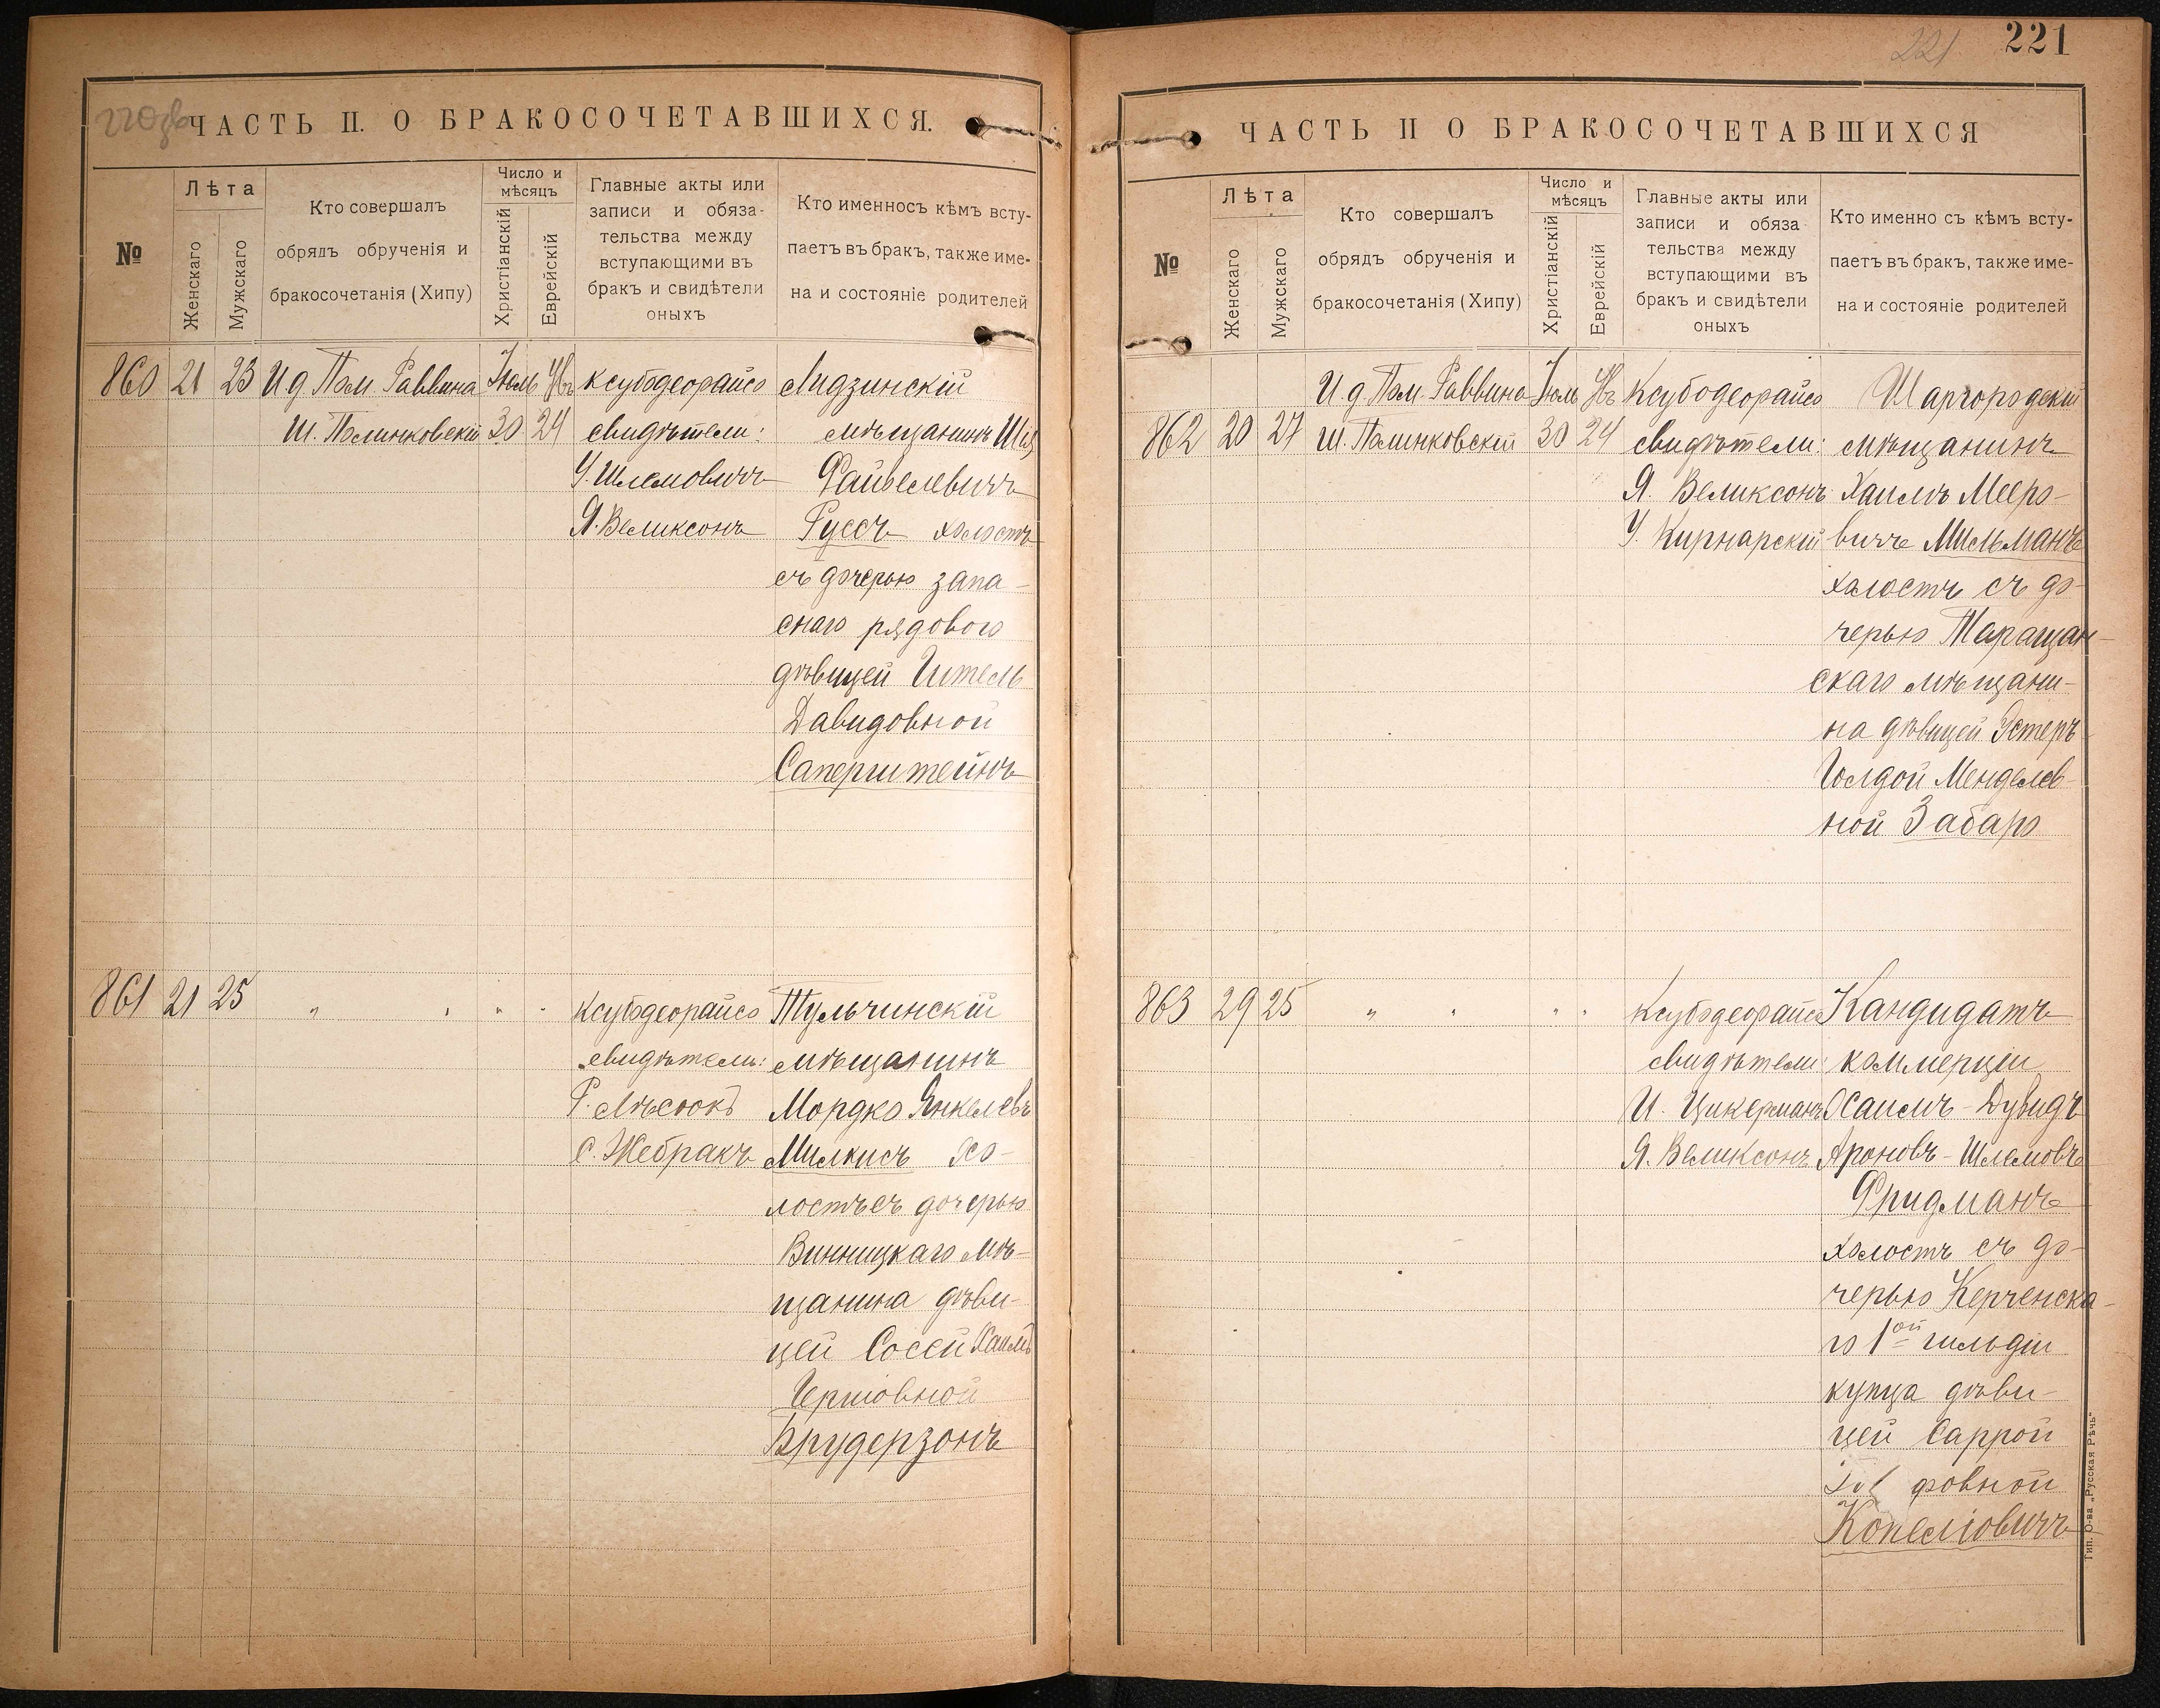 220об
ЧАСТЬ II. О БРАКОСОЧЕТАВШИХСЯ.
№
Лѣта
Женскаго
Мужскаго
Кто совершалъ
обрядъ обрученія и
бракосочетанія (Хипу)
Число и
мѣсяцъ
Христіанскій
Еврейскій
Главные акты или
записи и обяза-
тельства между
вступающими въ
бракъ и свидѣтели
оныхъ
Кто именносъ кѣмъ всту-
паетъ въ бракъ, также име-
на и состояніе родителей
860 21 23
И д Пом. Раввина
Ш. Полинковскій
Іюль
30
24
Ксубодеорайсо
свидѣтели:
У. Шлемовичъ
Я. Великсонъ
Лидзинскій
мѣщанинъ
Файвелевичъ
Руссъ холостъ
съ дочерью запа-
снаго рядового
дѣвицей Ител
Давидовной
Саперштейнъ
861 21 25 " " " "
Ксубодеорайсо
свидѣтели:
С. Жебракъ
Тульчинскій
мѣщанинъ
Мордко Янкелевъ
Милкисъ хо-
лостъ съ дочерью
Винницкаго мѣ-
щанина дѣви-
цей Сосей Хаимъ
Гершовной
Брудерзонъ
221
221
ЧАСТЬ II О БРАКОСОЧЕТАВШИХСЯ
№
Лѣта
Женскаго
Мужскаго
Кто совершалъ
обрядъ обрученія и
бракосочетанія (Хипу)
Число и
мѣсяцъ
Христіанскій
Еврейскій
Главные акты или
записи и обяза
тельства между
вступающими въ
бракъ и свидѣтели
оныхъ
Кто именно съ кѣмъ всту-
паетъ въ бракъ, также име-
на и состояніе родителей
862 20 27
И. д Пом. Раввина
Ш. Полинковскій
Іюль
30
24
Ксубодеорайсо
свидѣтели:
Я. Великсонъ
У. Кирнарскій
Шаргородскій
мѣщанинъ
Хаимъ Мееро-
вичъ Мильманъ
холостъ съ до-
черью Таращан-
скаго мѣщани-
на дѣвицей Эстеръ
Голдой Менделев-
ной Забаро
863 29 25 " " " "
Ксубодеорайсо
свидѣтели:
И. Цикерманъ
Я. Великсонъ
Кандидатъ
коммерціи
Хаимъ-Дувидъ
Ароновъ-Шлемовъ
Фридманъ
холостъ съ до-
черью Керченска-
го 1ой гильдіи
купца дѣви-
цей Саррой
Копеліовичъ
Тип. О-ва „Русская Рѣчь"